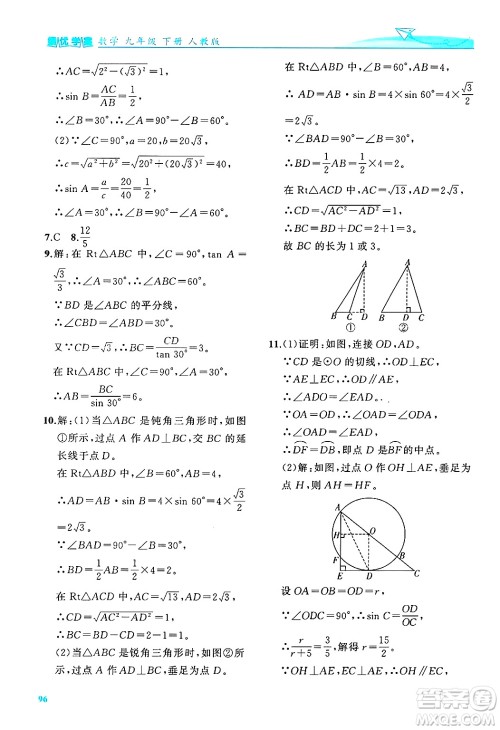 数学 九年级 下册 人教版
∴AC=√(2²-(√3)²)=1.
∴sin B=AC/AB=1/2.
∴∠B=30°,∠A=60°.
(2)∵∠C=90°,
∴c=√(a²+b²)=√(20²+(20√3)²)=40,
∴sin A=a/c=20/40=1/2.
∴∠A=30°,∠B=60°.
7.C 8.12/5
9.解:在 Rt△ABC 中,∵tan A=
√3/3,∴∠A=30°,∴∠ABC=60°.
∵BD 是∠ABC 的平分线,
∴∠CBD=∠ABD=30°.
又∵CD=√3,∴BC=CD/tan 30°=3.
在 Rt△ABC 中,∵∠A=30°,
∴AB=BC/sin 30°=6.
10.解:(1)当△ABC 是钝角三角形时,如图
①所示,过点 A 作 AD⊥BC,交 BC 的延
长线于点 D.
在 Rt△ABD 中,∵∠B=60°,
∴AD=AB·sin B=AB·sin 60°=4×√3/2
=2√3.
∵∠BAD=90°-∠B=30°,
∴BD=1/2AB=1/2×4=2.
在 Rt△ACD 中,∵AC=√13,AD=2√3,
∴CD=√(AC²-AD²)=1.
∴BC=BD-CD=2-1=1.
(2)当△ABC 是锐角三角形时,如图②所
示,过点 A 作 AD⊥BC,垂足为点 D.
在 Rt△ABD 中,∵∠B=60°,
∴AD=AB·sin B=AB·sin 60°=4×
√3/2=2√3.
∵∠BAD=90°-∠B=30°,
∴BD=1/2AB=1/2×4=2.
在 Rt△ACD 中,∵AC=√13,AD=2√3,
∴CD=√(AC²-AD²)=1.
∴BC=BD+CD=2+1=3.
故 BC 的长为 1 或 3.
A A
B C D B D C
① ②
11.(1)证明:如图,连接 OD,AD.
∵CD 是⊙O 的切线,∴OD⊥EC.
∵AE⊥EC,∴OD∥AE.
∴∠ADO=∠EAD.
∵OA=OD,∴∠OAD=∠ADO=∠EAD.
∴DF=DB,即点 D 为BF的中点.
(2)解:如图,过点 O 作 OH⊥AE,垂足为
点 H,则 AH=HF.
A
F
H O
B
E D C
设 OA=OB=OD=r,
∵∠ODC=90°,∴sin C=OD/OC,
∴r/(r+5)=3/5,解得 r=15/2.
∵OH⊥AE,AE⊥EC,OD⊥EC,
96